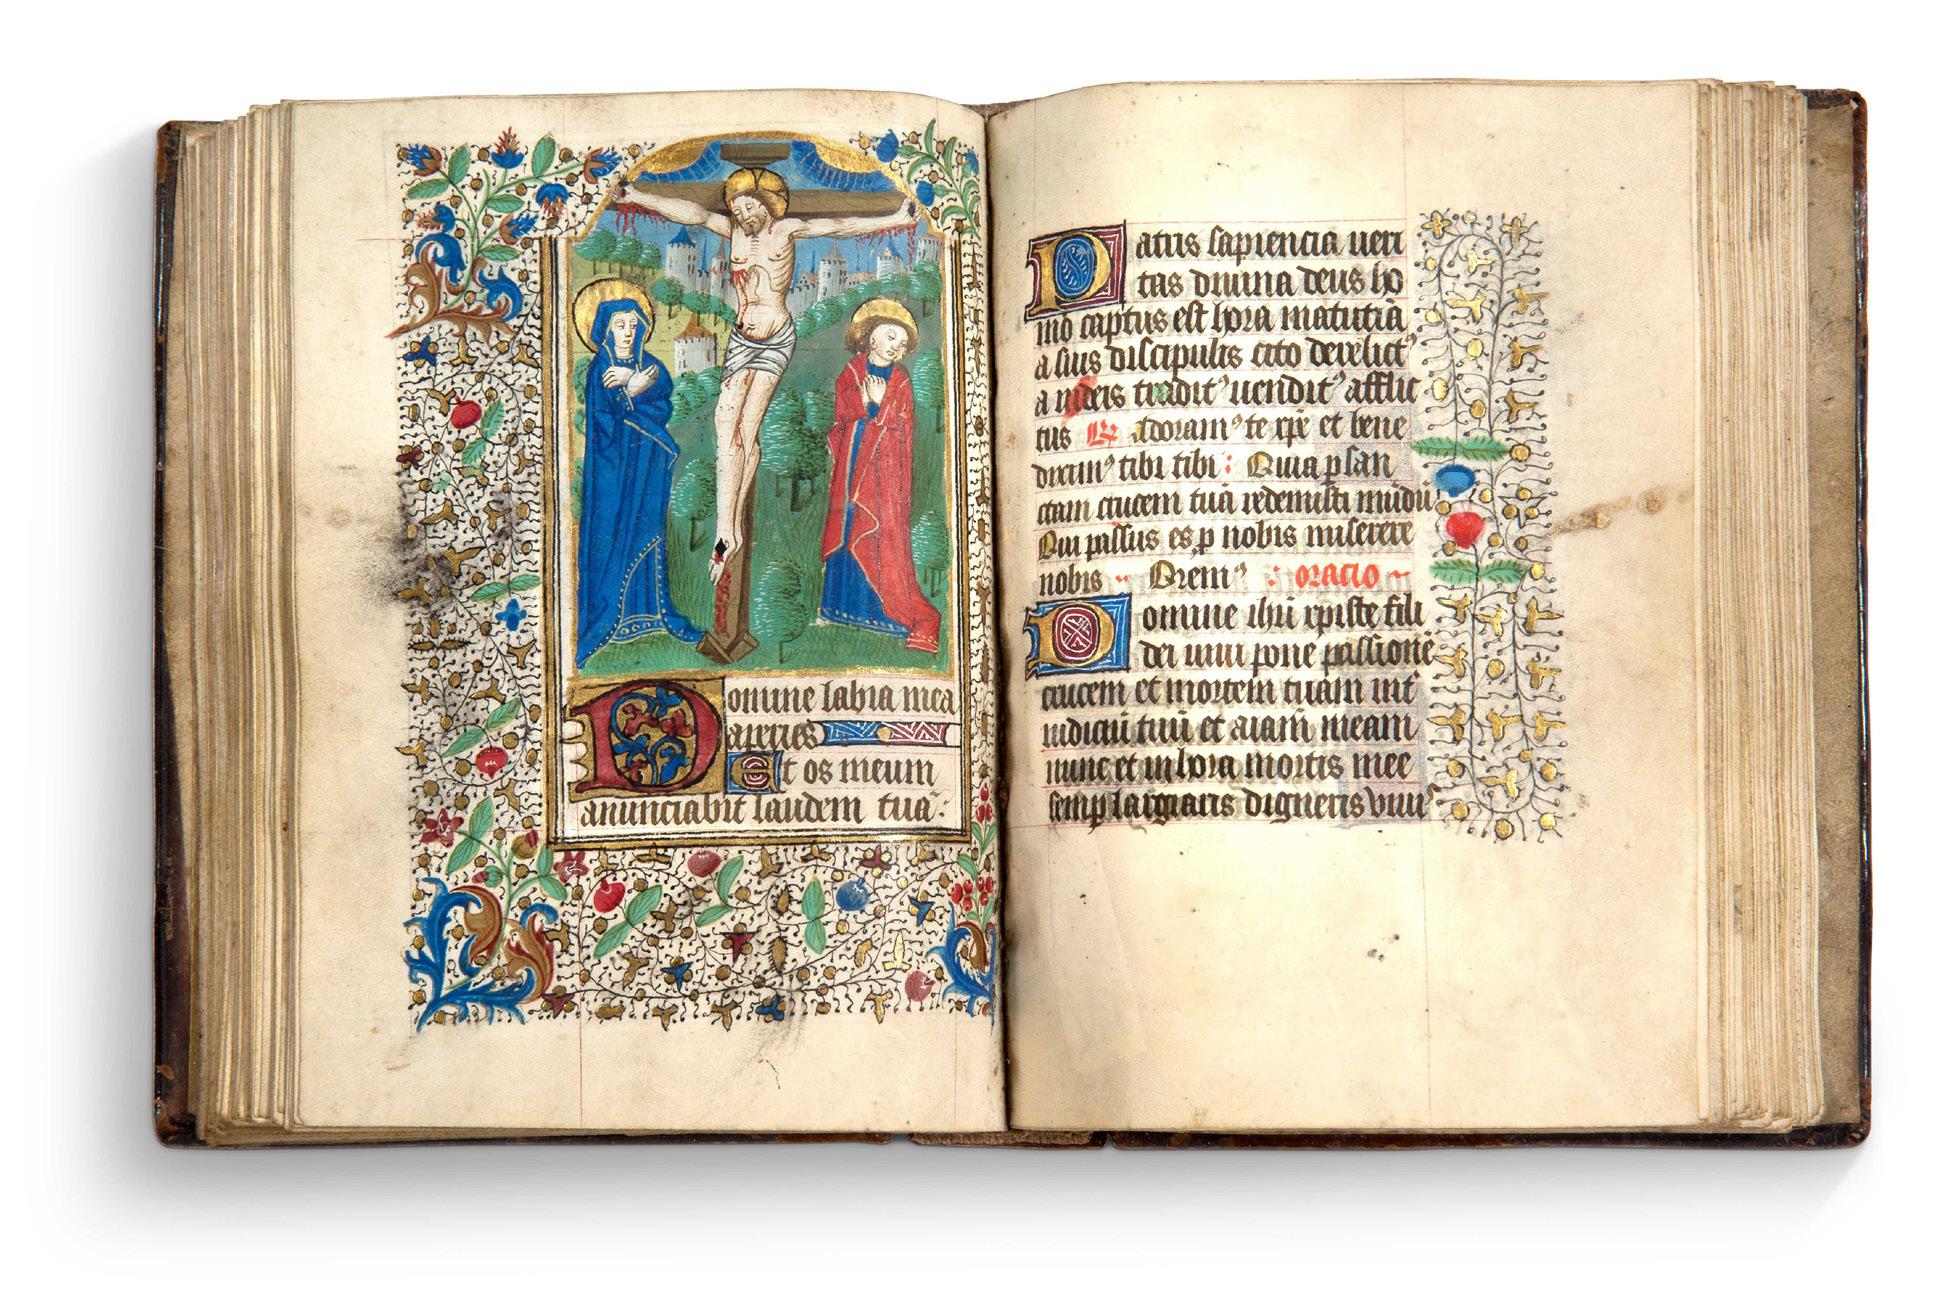 Domine labia mea
aperies
Et os meum
anunciabit laudem tuā:
Patris sapiencia veri
tas divina deus ho
mo captus est hora matutīa
a suis discipulis cito derelict᾿
a iudeis tradit᾿ vendit᾿ afflic
tus ℟ Adoram᾿ te xp̄e et bene
dicim᾿ tibi tibi : Quia p san
ctam crucem tuā redemisti mūdū
Qui passus es p nobis miserere
nobis Orem᾿ : oracio
Domine ihū xpiste fili
dei vivi pone passionē
crucem et mortem tuam int᾿
iudiciū tuū et aīam meam
nunc et in hora mortis mee
semp largiaris digneris vivi᾿